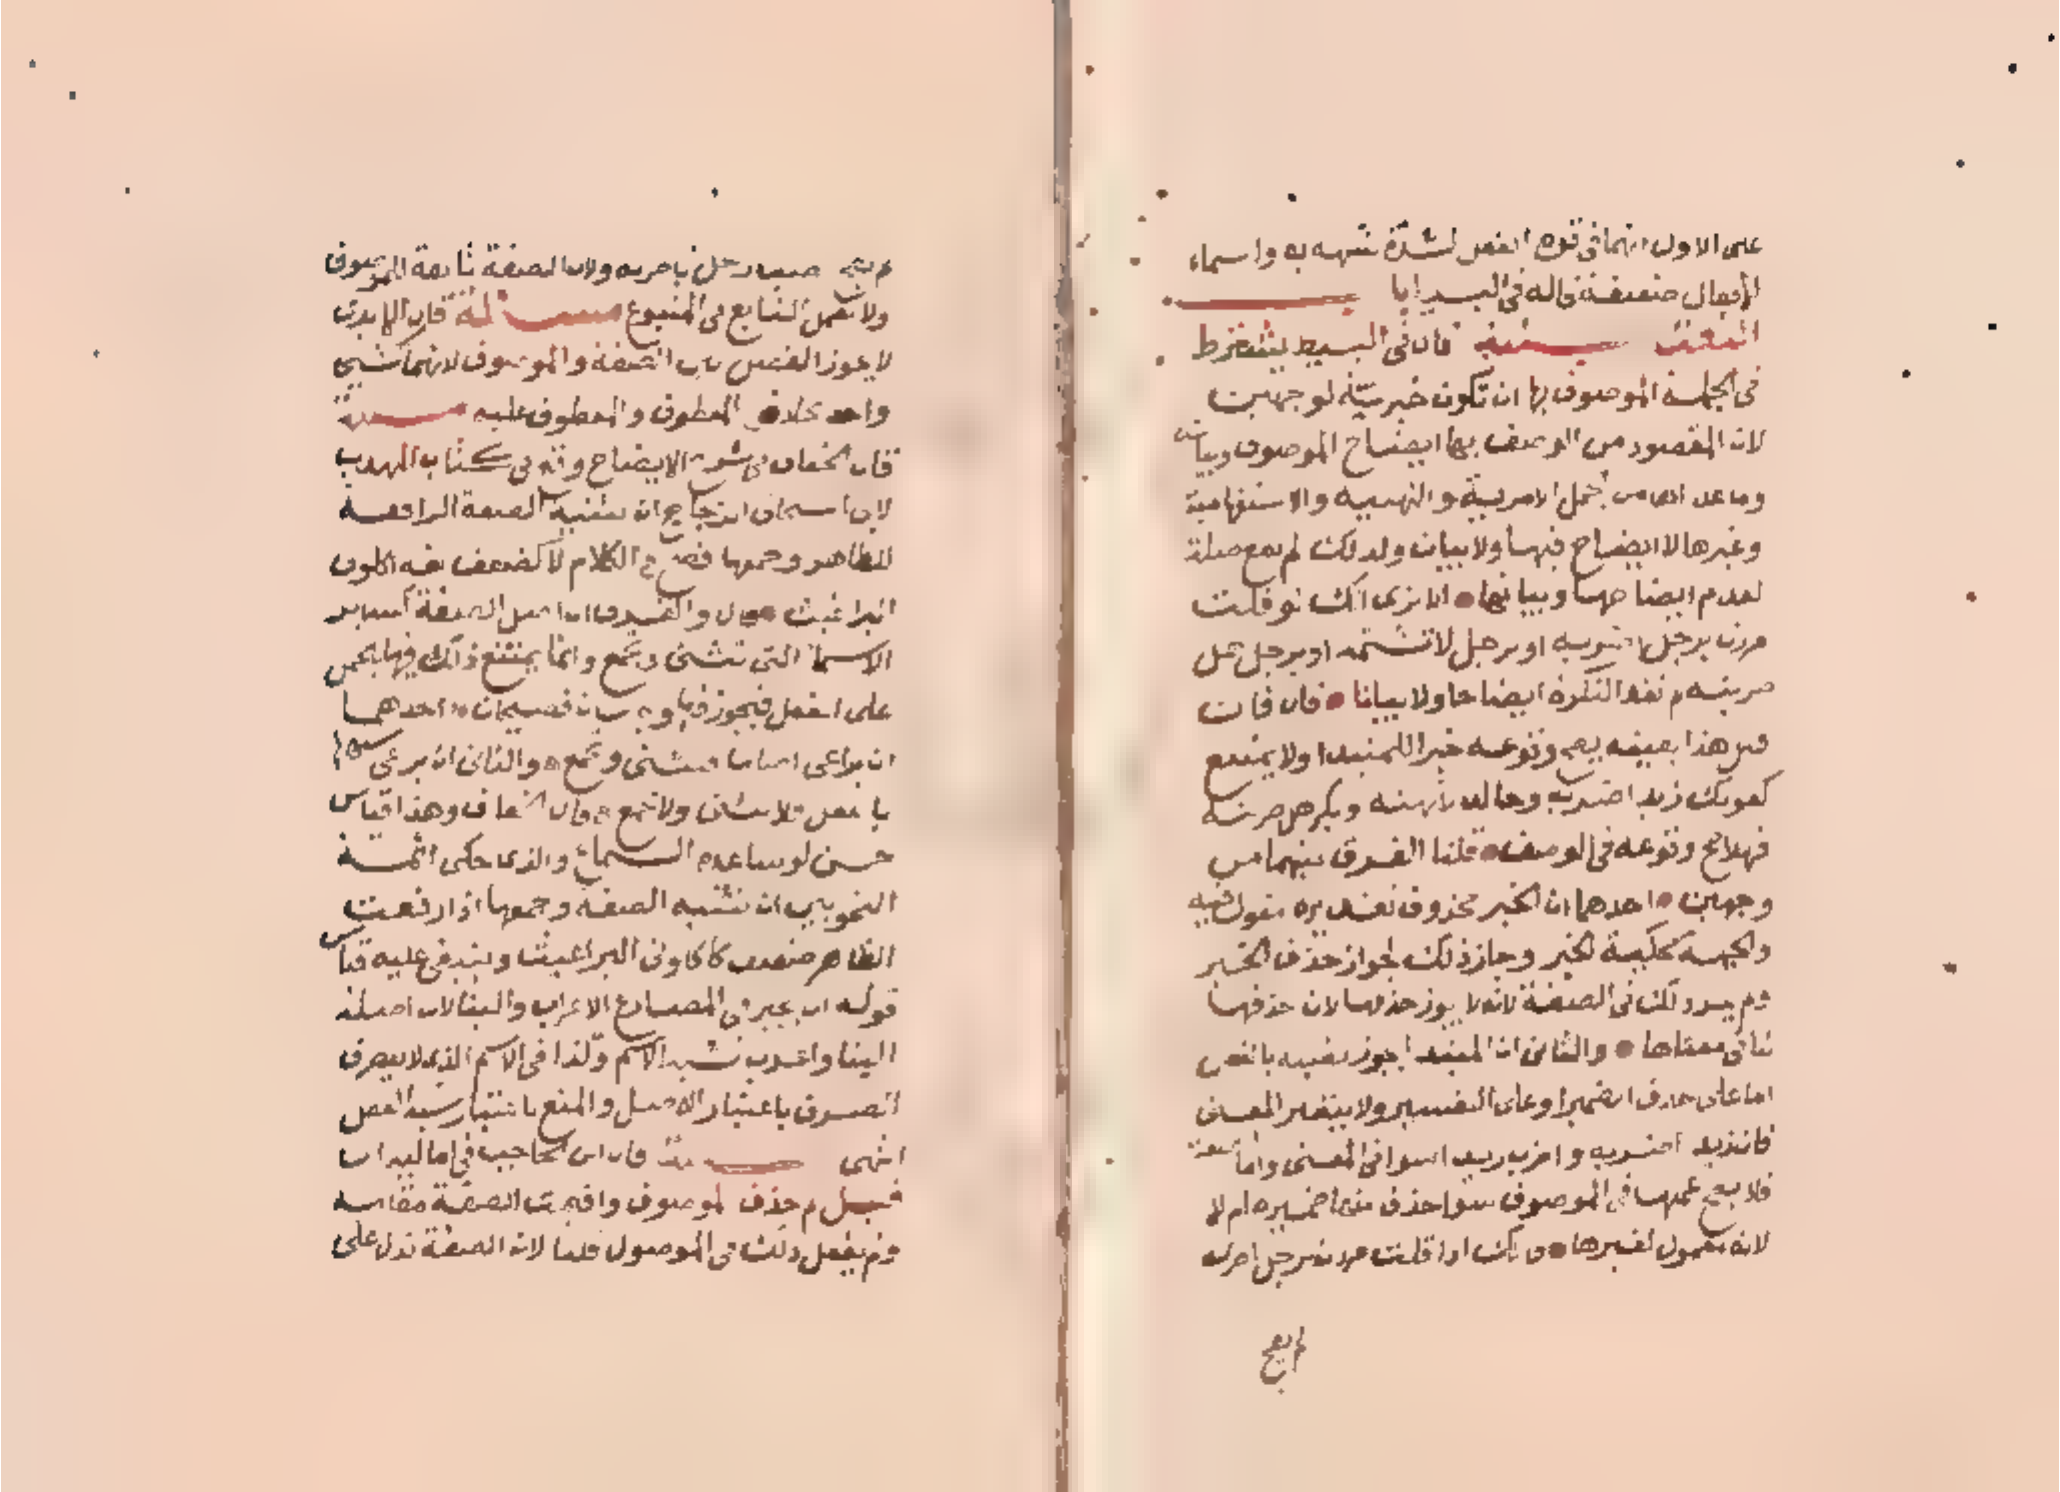 على الاول انها في قوة الفعل لشدة شبهه به واسماء
الأفعال ضعيفة قاله في البسيط
النعت مسئلة قال في البسيط يشترط
في الجملة الموصوف بها ان تكون خبرية لوجهين
لان المقصود من الوصف بها ايضاح الموصوف وبيانه
وما عدا من الجمل الامرية والنهيية والاستفهامية
وغيرها لا ايضاح فيها ولا بيان ولذلك لم يقع صلة
لعدم ايضاحها وبيانها الا ترى انك لو قلت
مررت برجل اضربه او برجل لا تشتمه او برجل هل
ضربته لم تفد النكرة ايضاحا ولا بيانا فان قلت
هذا بعينه يصح وقوعه خبرا للمبتدا ولا يمتنع
كقولك زيد اضربه وخالد لا تهنه وبكر هل ضربته
فهلا صح وقوعه في الوصف قلنا الفرق بينهما من
وجهين احدهما ان الخبر محذوف تقديره مقول فيه
والجملة محكية الخبر وجاز ذلك لجواز حذف الخبر
ولم يجز ذلك في الصفة لانه لا يجوز حذفها لان حذفها
ينافي معناها والثاني ان المبتدا يجوز نصبه بالفعل
اما على حذف الضمير او على التفسير ولا يتغير المعنى
فان زيد اضربه واضرب زيدا سوا في المعنى واما الصفة
فلا يصح عملها في الموصوف سوا حذف منها ضميره ام لا
لانه معمول لغيرها فانك اذا قلت مررت برجل اضربه
لم يصح
لم يصح نصب رجل باضربه ولان الصفة تابعة للموصوف
ولا يعمل التابع في المتبوع مسئلة قال الابذي
لا يجوز الفصل بين الصفة والموصوف لانهما كشي
واحد بخلاف المعطوف والمعطوف عليه مسئلة
قال الخفاف في شرح الايضاح وقع في كتاب المهذب
لابي اسحاق الزجاج ان تثنية الصفة الرافعة
للظاهر وجمعها فصيح في الكلام لا كضعف لغة اكلوني
البراغيث قال والفرق ان اصل الصفة كساير
الاسما التي تثنى وتجمع وانما يمتنع ذلك فيها بالحمل
على الفعل فيجوز فيها وجهان فصيحان احدهما
ان يراعى اصلها فتثنى وتجمع والثاني ان يراعى شبهها
بالفعل فلا تثنى ولا تجمع قال الخفاف وهذا قياس
حسن لو ساعده السماع والذي حكى ائمة
النحويين ان تثنية الصفة وجمعها اذا رفعت
الظاهر ضعيف كاكلوني البراغيث وينبغي عليه قياس
قوله ان يجيز في المضارع الاعراب والبنا لان اصله
البنا واعرب لشبه الاسم وكذا في الاسم الذي لا ينصرف
الصرف باعتبار الاصل والمنع باعتبار شبه الفعل
انتهى مسئلة قال ابن الحاجب في اماليه انما
قيل لم حذف الموصوف واقيمت الصفة مقامه
ولم يفعل ذلك في الموصول قلنا لان الصفة تدل على